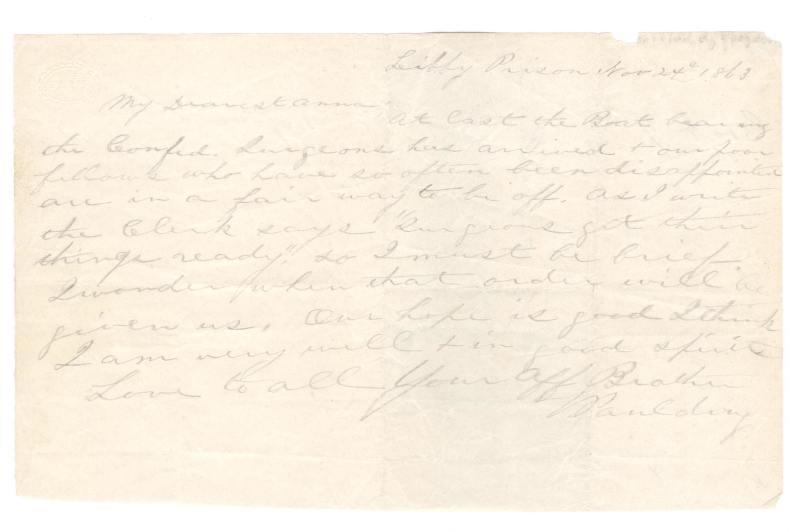 Libby Prison Nov 24th 1863
My Dearest Anna
At last the Boat bearing
the Confed. Surgeons has arrived & our poor
fellows who have so often been disappointed
are in a fair way to be off. As I write
the Clerk says "Surgeons get their
things ready," so I must be brief.
I wonder when that order will be
given us. Our hope is good I think
I am very well & in good spirits
Love to all Your Aff Brother
Paulding